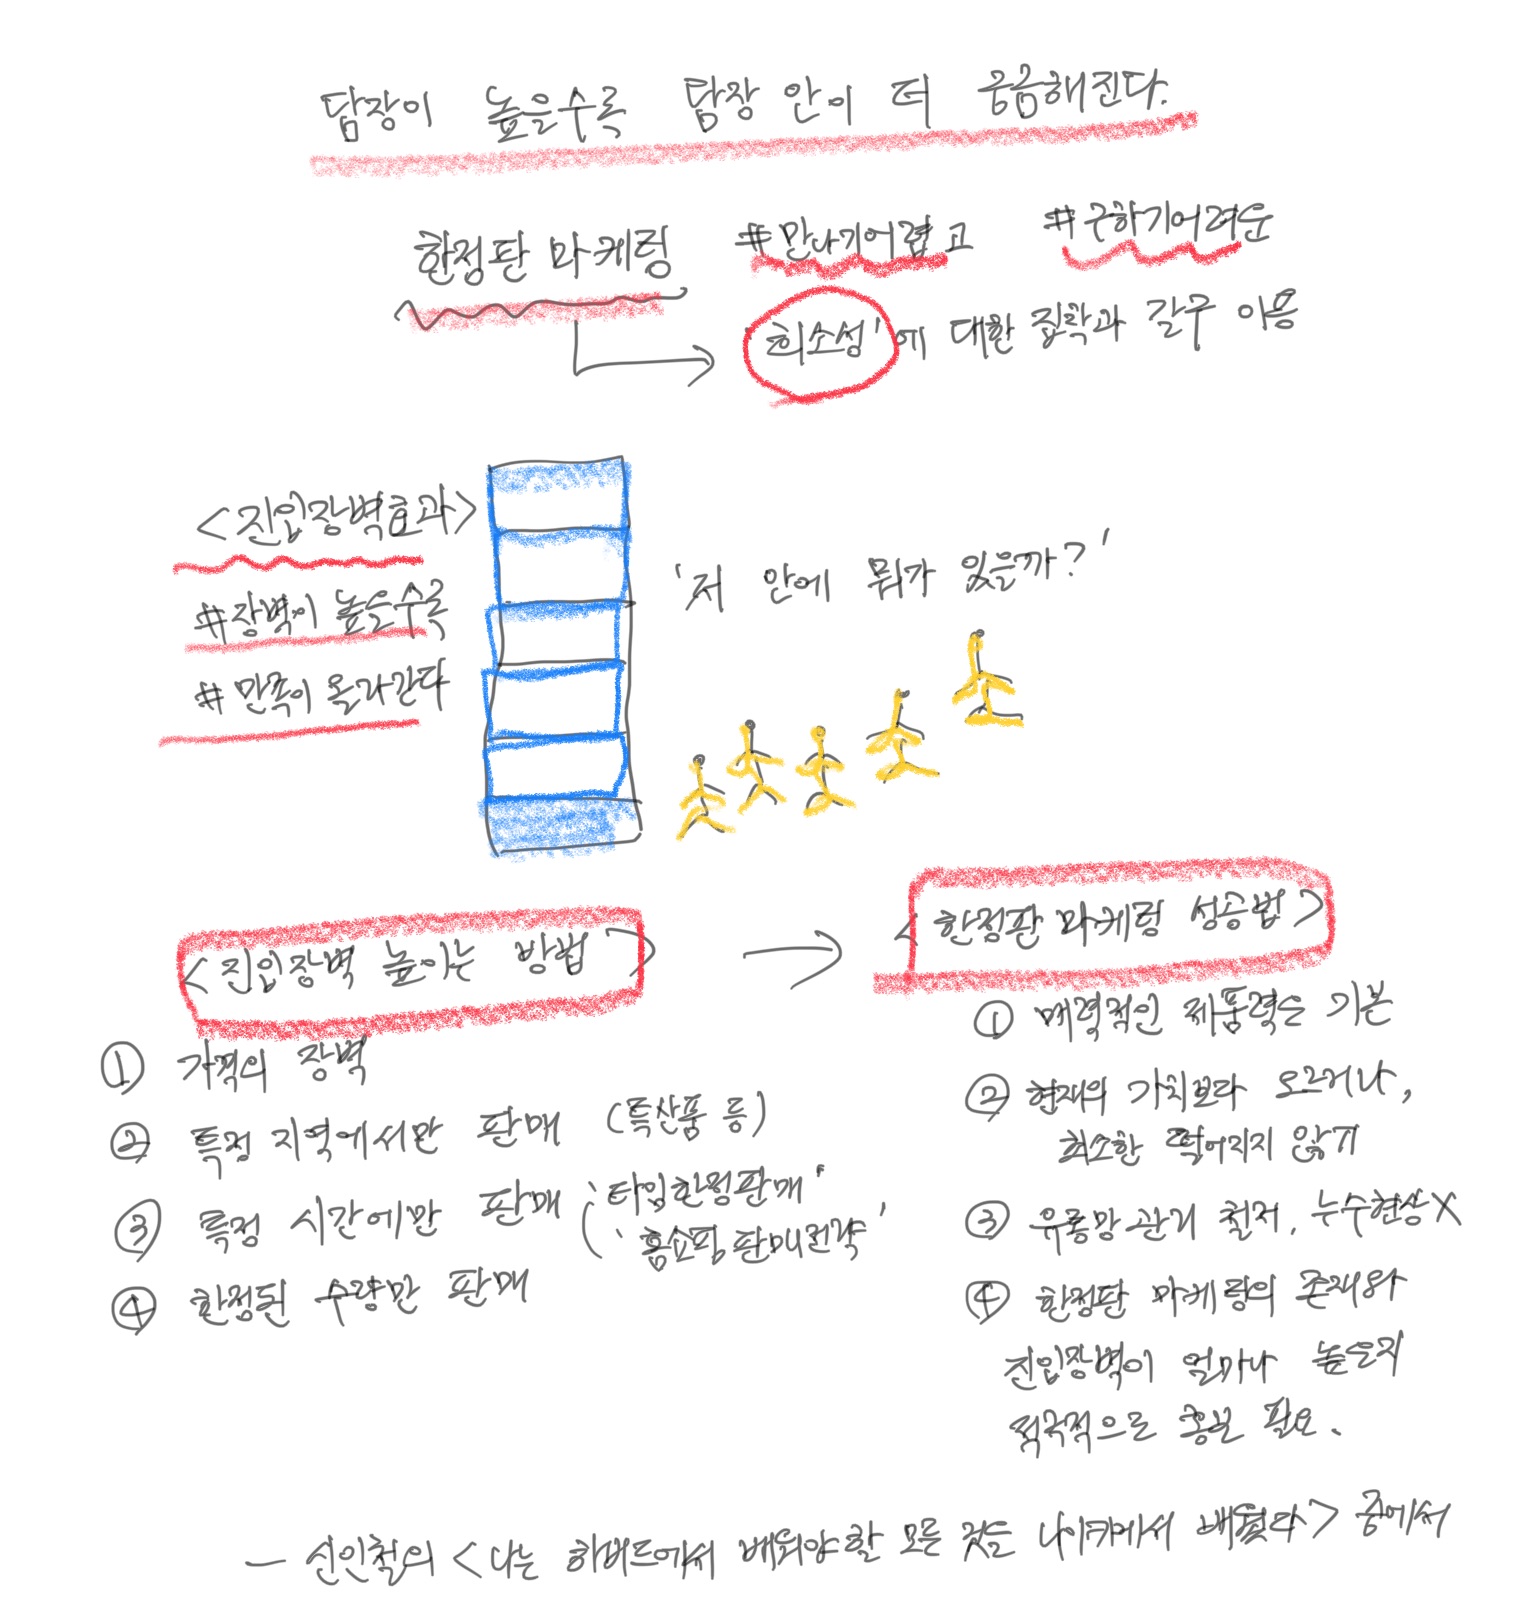 담장이 높을수록 담장 안이 더 궁금해진다.
한정판 마케팅 #만나기어렵고 #구하기어려운
'희소성'에 대한 집착과 갈구 이용
<진입장벽효과>
#장벽이 높을수록
#만족이 올라간다
'저 안에 뭐가 있을까?'
<진입장벽 높이는 방법>
① 가격의 장벽
② 특정 지역에서만 판매 (특산품 등)
③ 특정 시간에만 판매 ('타임한정판매'
'홈쇼핑 판매전략'
④ 한정된 수량만 판매
<한정판 마케팅 성공법>
① 매력적인 제품력은 기본
② 현재의 가치보다 오르거나,
최소한 떨어지지 않기
③ 유통망 관리 철저, 누수현상X
④ 한정판 마케팅의 존재와
진입장벽이 얼마나 높은지
적극적으로 홍보 필요.
- 신인철의 <나는 하버드에서 배워야 할 모든 것을 나이키에서 배웠다> 중에서